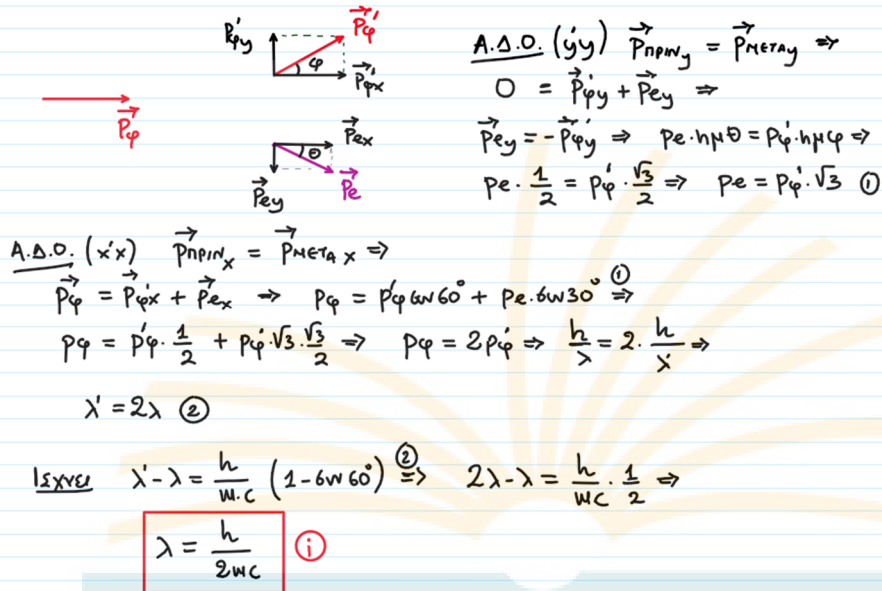 P⃗φ
P'φy P⃗φ'
φ P⃗φ'x
P⃗ex
θ P⃗e
P⃗ey
Α.Δ.Ο. (y'y) P⃗ΠΡΙΝy = P⃗ΜΕΤΑy ⇒
0 = P⃗φ'y + P⃗ey ⇒
P⃗ey = -P⃗φ'y ⇒ Pe·ημθ = Pφ'·ημφ ⇒
Pe · 1/2 = Pφ' · √3/2 ⇒ Pe = Pφ'·√3 ①
Α.Δ.Ο. (x'x) P⃗ΠΡΙΝx = P⃗ΜΕΤΑx ⇒
P⃗φ = P⃗φ'x + P⃗ex ⇒ Pφ = P'φ συν60° + Pe·συν30° ①⇒
Pφ = P'φ · 1/2 + Pφ'·√3·√3/2 ⇒ Pφ = 2Pφ' ⇒ h/λ = 2· h/λ' ⇒
λ' = 2λ ②
Ισχυει λ' - λ = h/m·c (1 - συν60°) ②⇒ 2λ - λ = h/mc · 1/2 ⇒
λ = h/2mc ⓘ